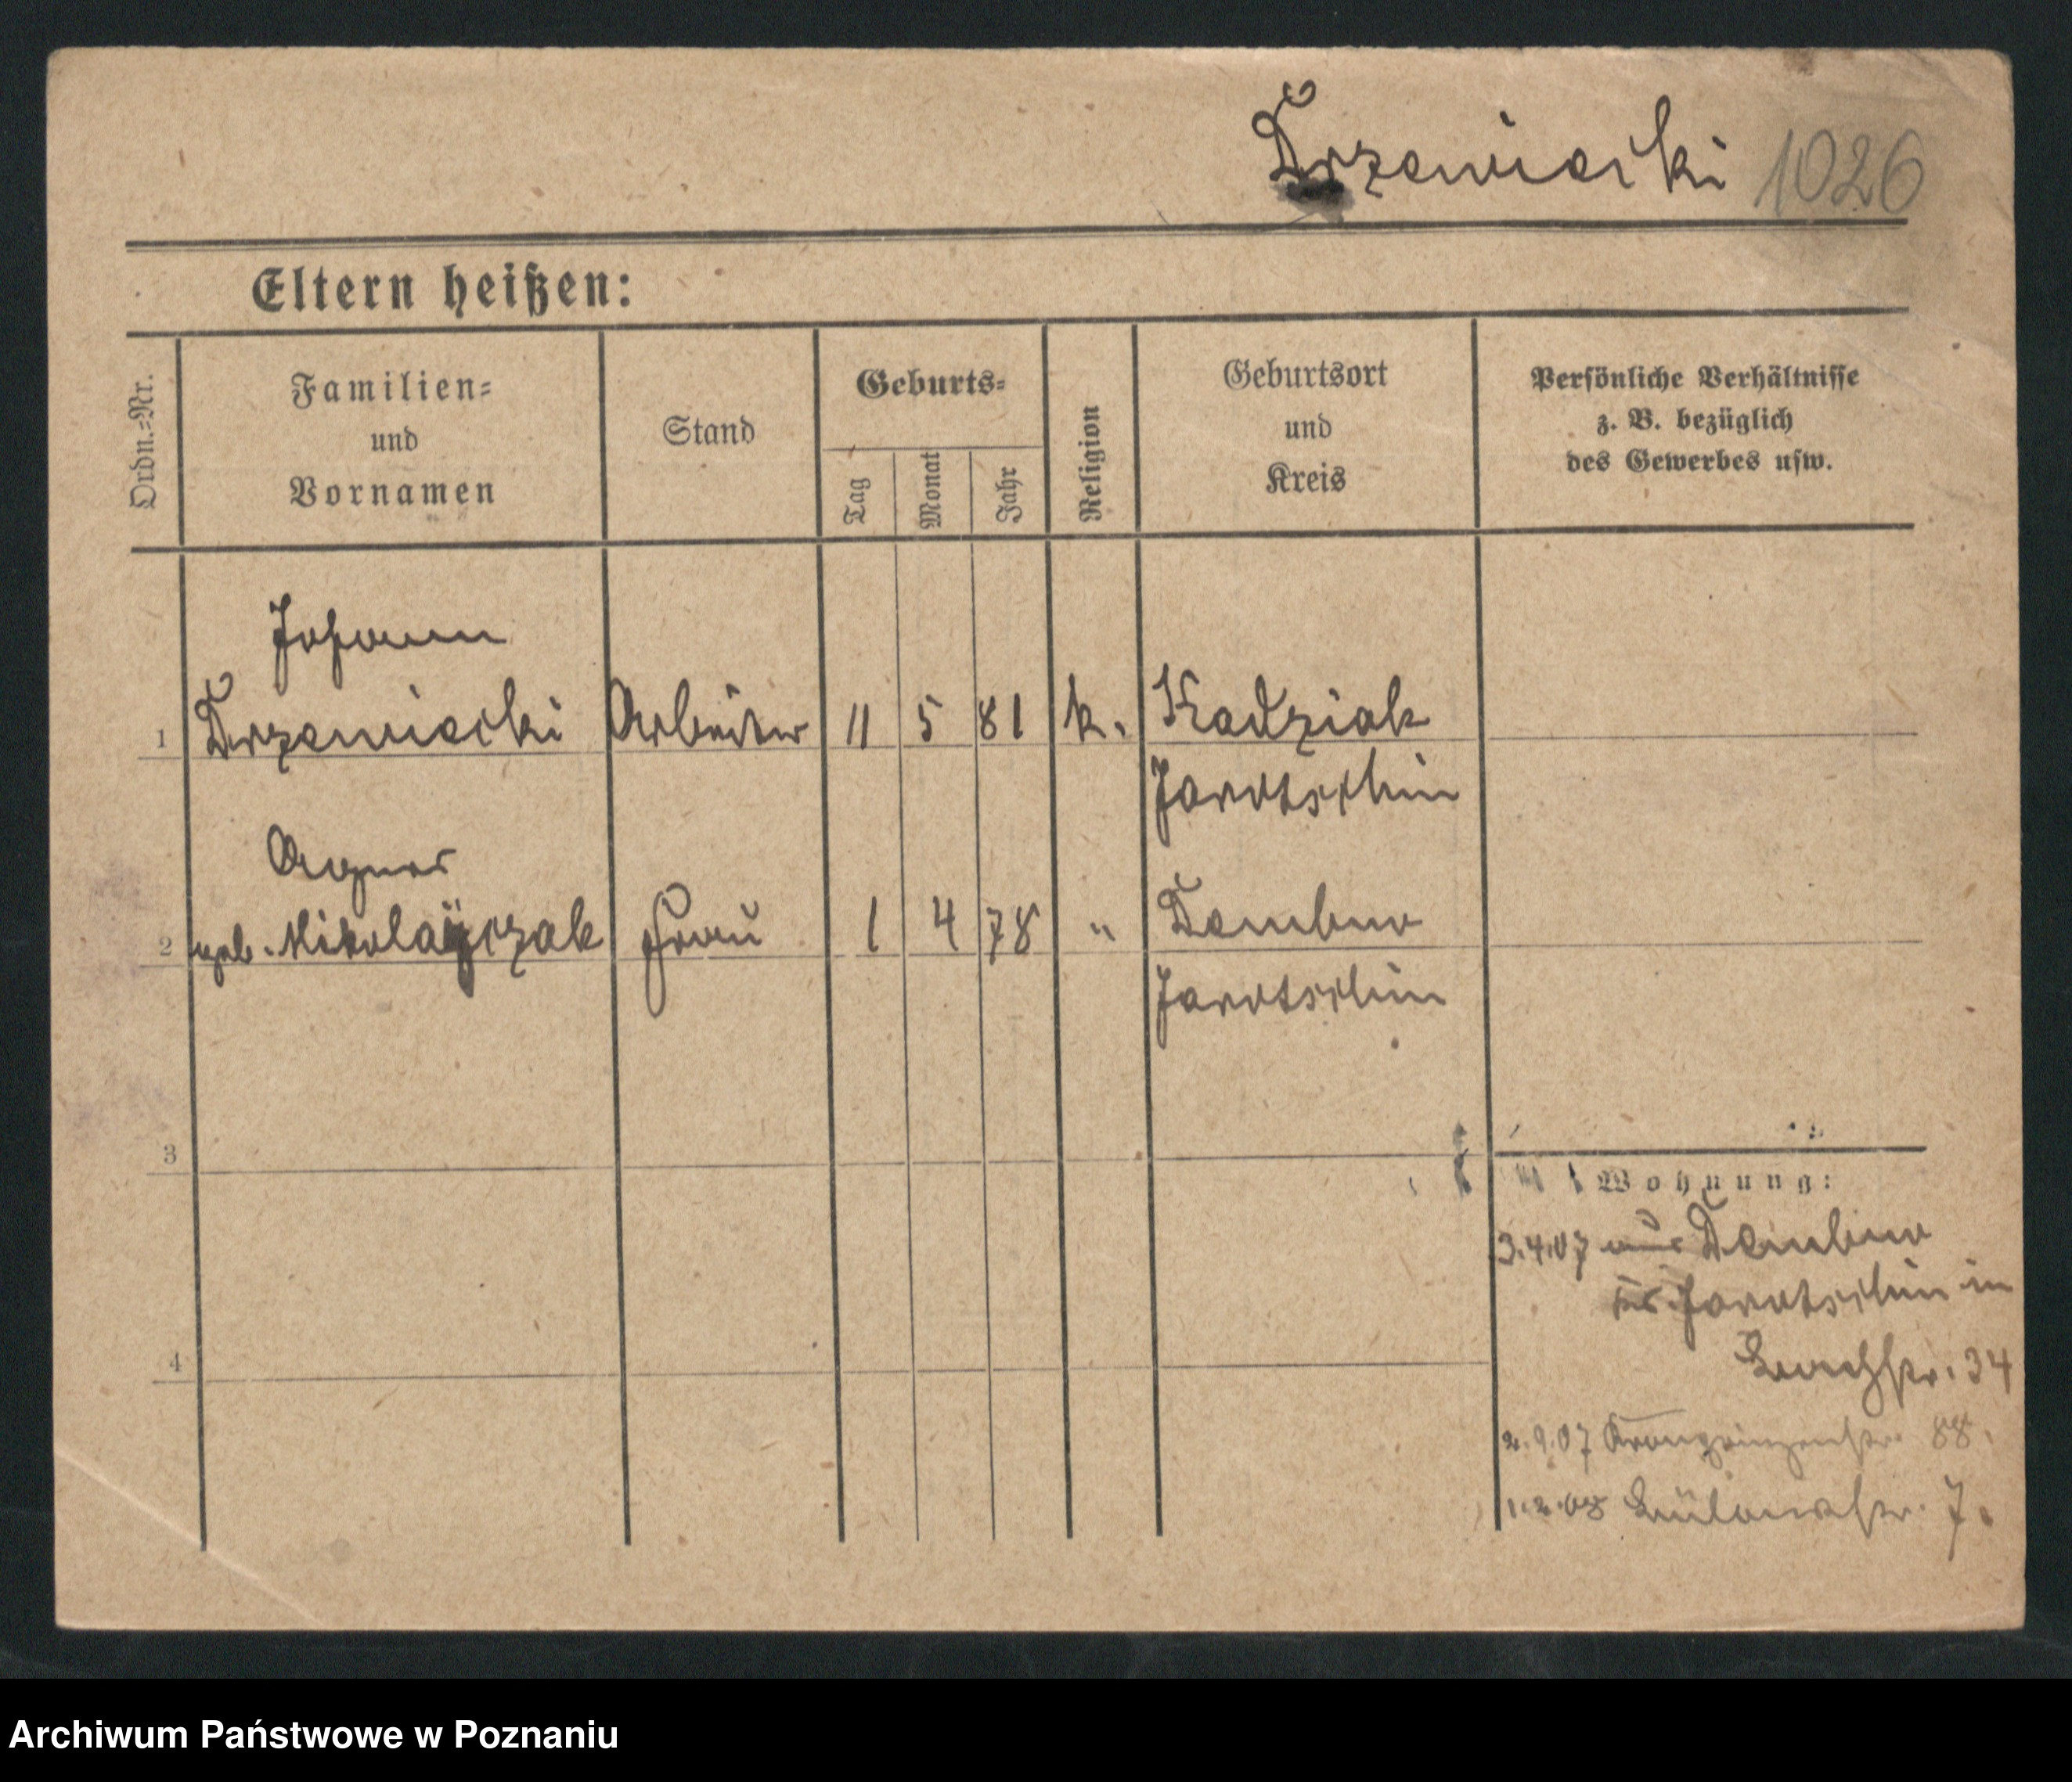 Drzewiecki 1026
Eltern heißen:
Ordn.=Nr.
Familien=
und
Vornamen
Stand
Geburts=
Tag
Monat
Jahr
Religion
Geburtsort
und
Kreis
Persönliche Verhältnisse
z. B. bezüglich
des Gewerbes usw.
Johann
1 Drzewiecki Arbeiter 11 5 81 k. Kadziak
Jarotschin
Agnes
2 geb. Mikolayczak Frau 1 4 78 " Dembno
Jarotschin
3
Wohnung:
3.4.07 aus Dembno
Jarotschin in
34
4
2.9.07 Kronprinzenstr. 88.
1.2.08 Bülowstr. 7.
Archiwum Państwowe w Poznaniu